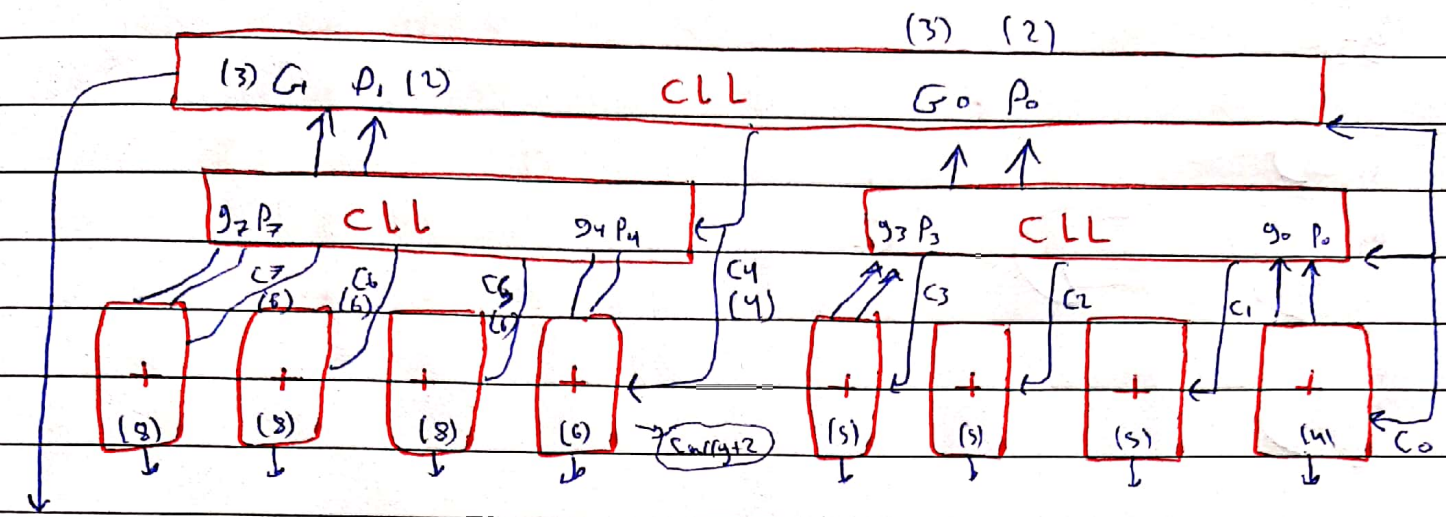 (3) (2)
(3) G1 P1 (2) CLL G0 P0
g7 P7 CLL g4 P4 g3 P3 CLL g0 P0
C7 (6) C6 (6) C5 (6) C4 (4) C3 C2 C1
+ + + + + + + +
(8) (8) (8) (6) Carry+2 (5) (5) (5) (4) C0